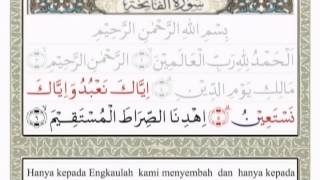 سورة الفاتحة
بِسْمِ اللَّهِ الرَّحْمَٰنِ الرَّحِيمِ
الْحَمْدُ لِلَّهِ رَبِّ الْعَالَمِينَ الرَّحْمَٰنِ الرَّحِيمِ
مَالِكِ يَوْمِ الدِّينِ إِيَّاكَ نَعْبُدُ وَإِيَّاكَ
نَسْتَعِينُ اهْدِنَا الصِّرَاطَ الْمُسْتَقِيمَ
Hanya kepada Engkaulah kami menyembah dan hanya kepada